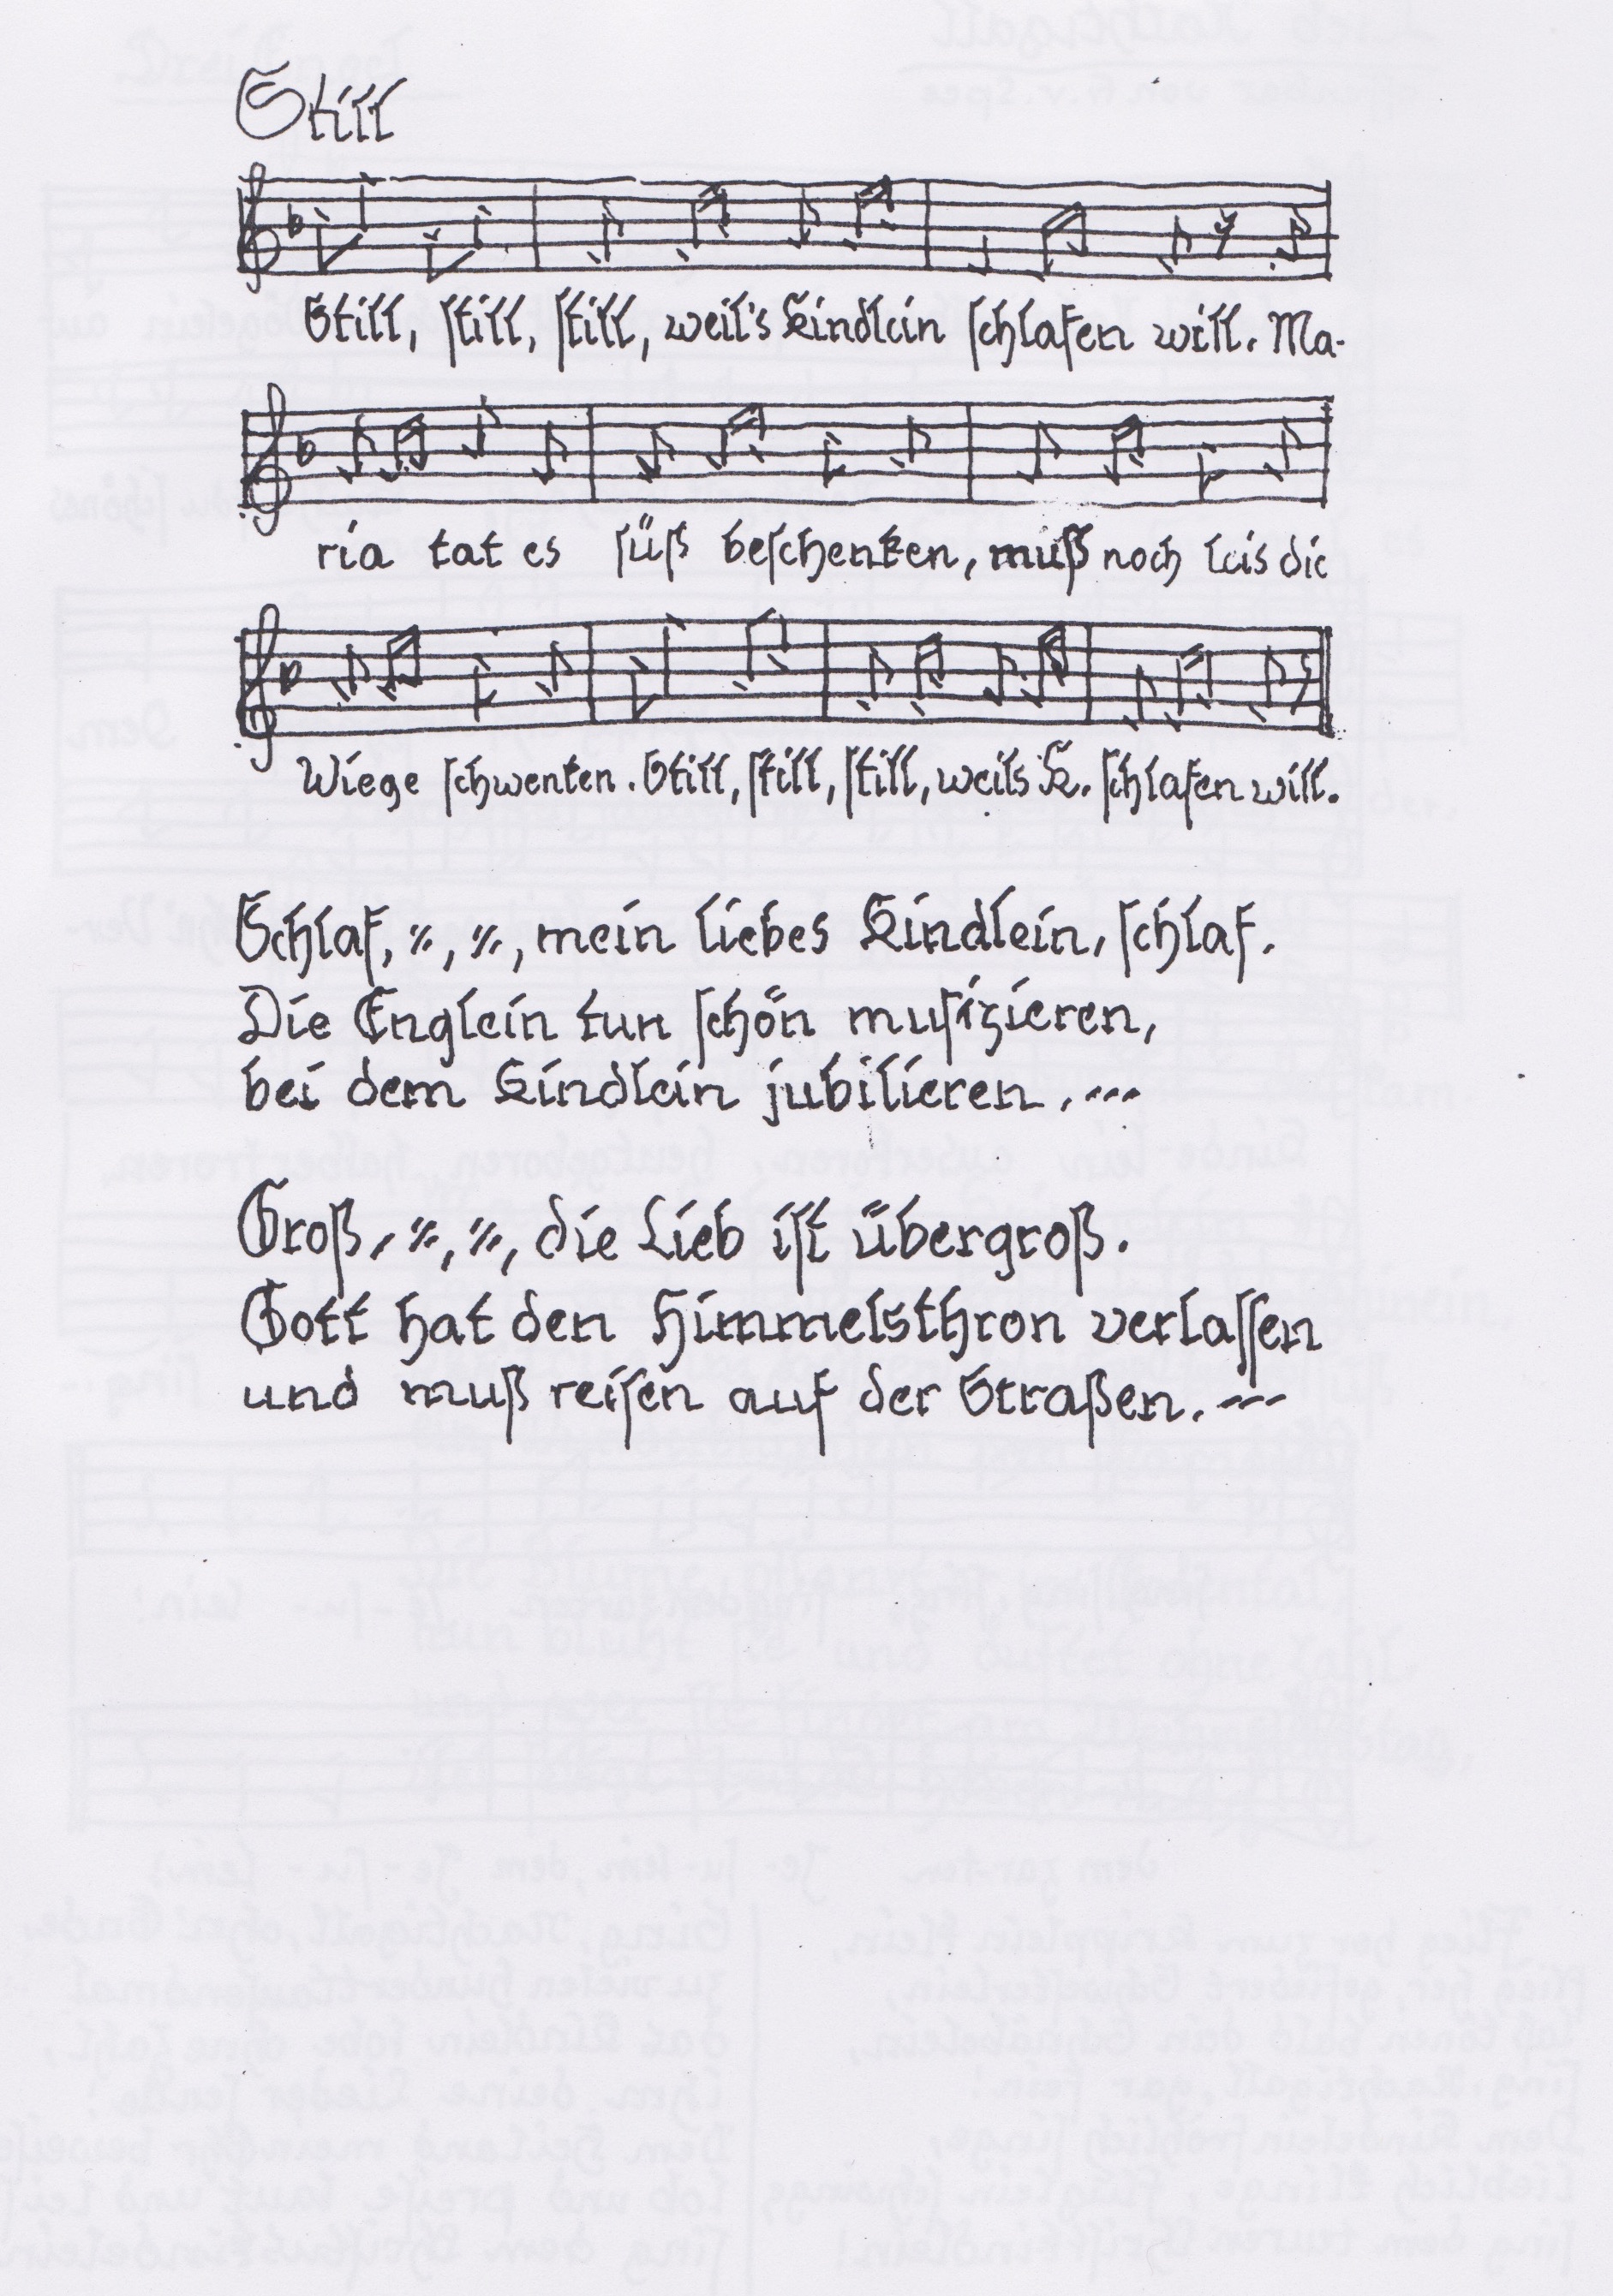 Still
Still, still, still, weil's Kindlein schlafen will. Ma-
ria tat es süß beschenken, muß noch leis die
Wiege schwenken. Still, still, still, weils K. schlafen will.
Schlaf, ⁒, ⁒, mein liebes Kindlein, schlaf.
Die Englein tun schön musizieren,
bei dem Kindlein jubilieren. ---
Groß, ⁒, ⁒, die Lieb ist übergroß.
Gott hat den Himmelsthron verlassen
und muß reisen auf der Straßen. ---